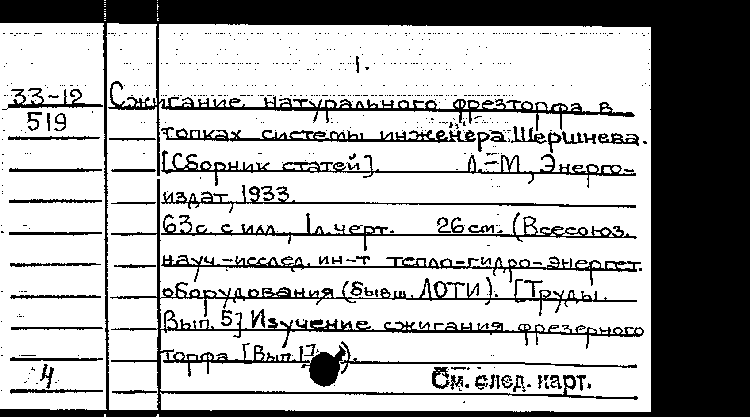 1.
33-12 Сжигание натурального фрезторфа в
519 топках системы инженера Шершнева.
[Сборник статей]. Л.-М., Энерго-
издат, 1933.
63 с. с илл., 1 л. черт. 26 см. (Всесоюз.
науч.-исслед. ин-т тепло-гидро-энергет.
оборудования (бывш. ЛОТИ). [Труды.
Вып. 5] Изучение сжигания фрезерного
торфа [Вып. 1]).
4 См. след. карт.